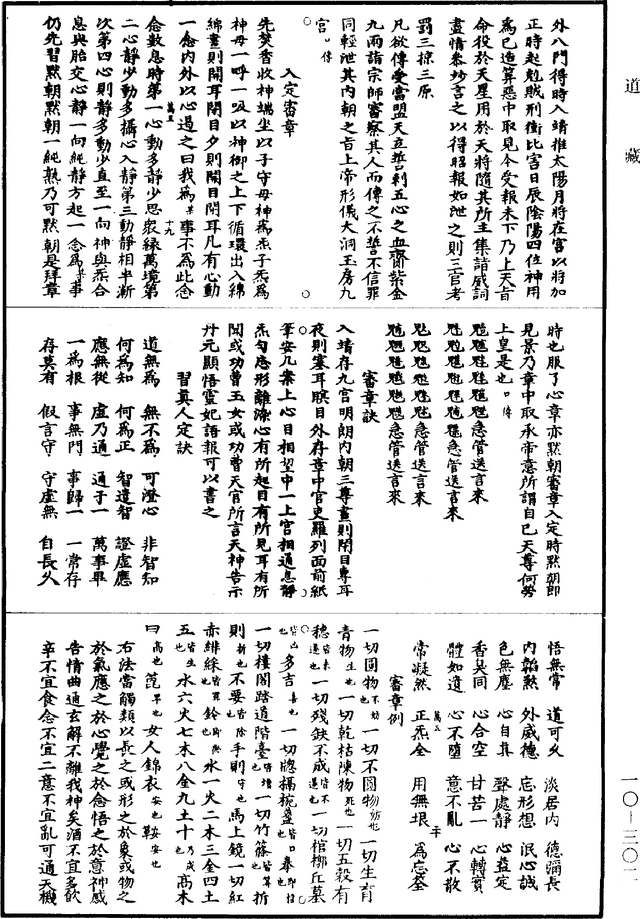 道藏
外八門得時入靖推太陽月將在宮以將加
正時起魁賊刑衝比宮日辰陰陽四位神用
為已造算惡中取見今受報未下乃上天旨
命役於天星用於天將隨其所主集諸咸詞
盡情參妙言之以得昭報如泄之則三官考
罰三掠三原
凡欲傳受當盟天立誓刺五心之血齎紫金
九兩請宗師審察其人而傳之不誓不信罪
同輕泄其內朝之旨上帝形儀大洞玉房九
宮口傳
入定審章
先焚香收神端坐以子守母神為炁子炁為
神母一呼一吸以神御之上下循環出入綿
綿晝則開耳閉目夕則開目閉耳凡有心動
一念內外以心過之曰我為某事不為此念
念數息時第一心動多靜少思衆緣萬境第
二心靜少動多攝心入靜第三動靜相半漸
次第四心則靜多動少直至一向神與炁合
息與胎交心靜一向純靜方起一念為某事
仍先習默朝默朝一純熟乃可默朝是拜章
時也服了心章亦默朝審章入定時默朝即
見景乃章中取承帝意所謂自己天尊何勞
上皇是也口傳
急管送言來
急管送言來
急管送言來
急管送言來
審章訣
入靖存九宮明朗內朝三尊晝則閉目專耳
夜則塞耳瞑目外存章中官吏羅列面前紙
筆安几案上心目相望中一上宮相通息靜
炁勻忘形離滌心有所起目有所見耳有所
聞或功曹玉女或功曹天官所言天神告示
丹元顯悟靈妃語報可以書之
習真人定訣
道無為 無不為 可澄心 非智知
何為知 何為正 智遣智 證虛應
應無從 虛乃通 通于一 萬事畢
一為根 事無門 事歸一 一常存
存莫有 假言守 守虛無 自長久
悟無常 道可久 淡居內 德彌長
內韜默 外威德 忘形想 泯心誠
色無塵 心自真 聲處靜 心益定
香臭同 心合空 甘苦一 心轉實
體如遺 心不墮 意不亂 心不散
常凝然 正炁全 用無垠 為忘筌
審章例
一切圓物也不劫一切不圓物妨也一切生育
青物生也一切乾枯陳物死也一切五穀有
穗皆未還也一切殘缺不成皆不還也一切棺槨丘墓
皆凶也多吉喜也一切牕槅椀盞皆口也奉即招也
一切樓閣踏道階臺皆增也一切竹篠皆算也折
則新也不要皆除也手則守也馬上鏡一切紅
赤緋綵皆罪也鈴即除也水一火二木三金四土
五皆生也水六火七木八金九土十乃成也高木
曰高也箆早也女人錦衣安也鞍安也
右法當觸類以長之或形之於象或物之
於氣應之於心覺之於念悟之於意神感
告情曲通玄解不離我神矣酒不宜多飲
辛不宜食念不宜二意不宜亂可通天機
一〇—三〇二